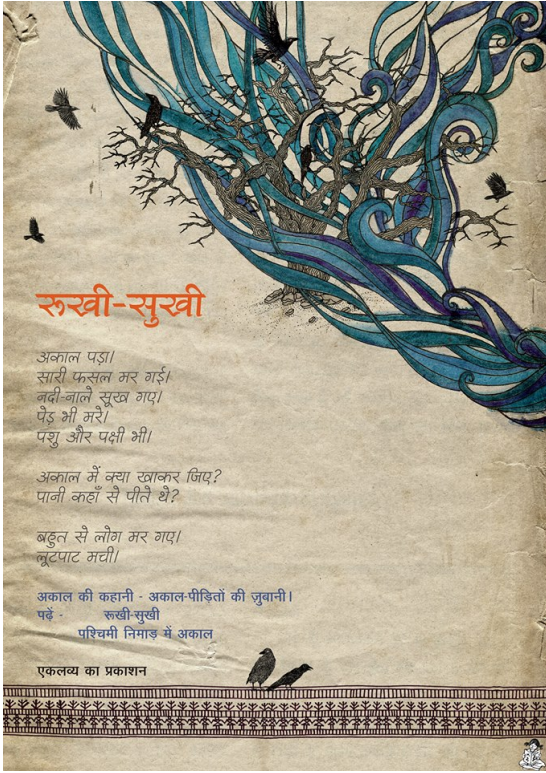 रूखी-सुखी
अकाल पड़ा।
सारी फसल मर गई।
नदी-नाले सूख गए।
पेड़ भी मरे।
पशु और पक्षी भी।
अकाल में क्या खाकर जिए?
पानी कहाँ से पीते थे?
बहुत से लोग मर गए।
लूटपाट मची।
अकाल की कहानी - अकाल-पीड़ितों की ज़ुबानी।
पढ़ें - रूखी-सुखी
पश्चिमी निमाड़ में अकाल
एकलव्य का प्रकाशन